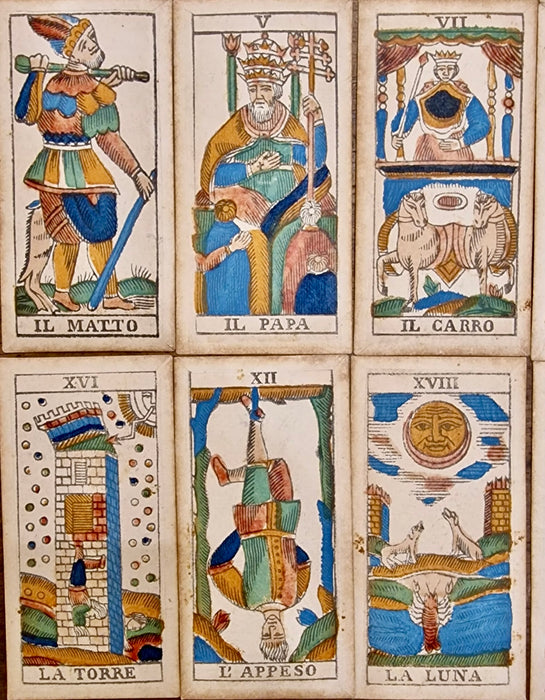 IL MATTO
V
IL PAPA
VII
IL CARRO
XVI
LA TORRE
XII
L'APPESO
XVIII
LA LUNA